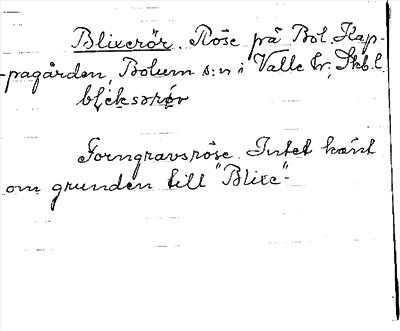 Blixerör. Röse på Bol. Klap-
-pagården, Bolum s:n i Valle hr, Skbl.
bl̥iksərør
Forngravsröse. Intet känt
om grunden till "Blixe"-